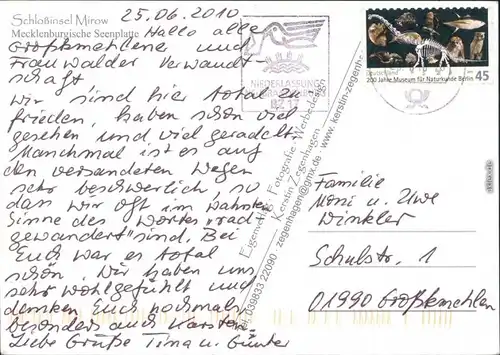 Schloßinsel Mirow
Mecklenburgische Seenplatte
25.06.2010
Hallo alle
Großkmehlene und
Frauwalder Verwandt-
schaft
wir sind hier total zu-
frieden, haben schon viel
gesehen und viel geradelt.
Manchmal ist es auf
den versandeten Wegen
sehr beschwerlich, so
dass wir oft im wahrsten
Sinne des Wortes "rad-
gewandert" sind. Bei
Euch war es total
schön. Wir haben uns
sehr wohlgefühlt und
denken Euch nochmals
besonders auch Karsten
Liebe Grüße Tina u. Günter
Eigenverlag - Fotografie - Werbedesign
Kerstin Zegenhagen
Tel. 039833 22090 - zegenhagen@gmx.de - www.kerstin-zegenhagen
NIEDERLASSUNG
BZ 17
Deutschland
200 Jahre Museum für Naturkunde Berlin
45
Familie
Moni u. Uwe
Winkler
Schulstr. 1
01990 Großkmehlen